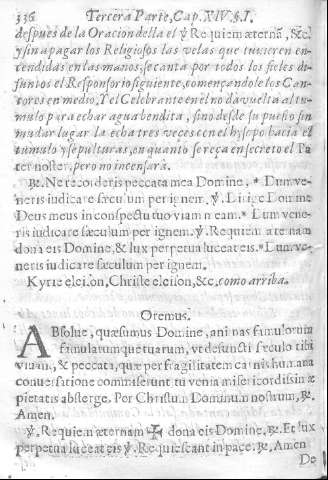 336 Tercera Parte, Cap. XIV. §. I.
despues de la Oracion della el ℣ Requiem æternã, &c.
y sin apagar los Religiosos las velas que tuvieren en-
cendidas en las manos; se canta por todos los fieles di-
funtos el Responsorio siguiente, començandole los Can-
tores en medio, Y el Celebrante en él no dá vuelta al tu-
mulo para echar agua bendita, sino desde su puesto sin
mudar lugar la echa tres veces con el hysopo hacia el
tumulo y sepulturas, en quanto se reça en secreto el Pa
ter noster, pero no incensará.
℟. Ne recorderis peccata mea Domine, * Dum ve-
neris iudicare sæculum per ignem. ℣. Dirige Domine
Deus meus in conspectu tuo viam meam. * Dum vene-
ris iudicare sæculum per ignem. ℣. Requiem æternam
dona eis Domine, & lux perpetua luceat eis. * Dum ve-
neris iudicare sæculum per ignem.
Kyrie eleison, Christe eleison, &c. como arriba.
Oremus.
ABsolue, quæsumus Domine, animas famulorum
famularumque tuarum, vt defuncti sæculo tibi
viuant, & peccata, quæ per fragilitatem carnis humana
conuersatione commiserunt tu venia misericordissimæ
pietatis absterge. Per Christum Dominum nostrum, ℟.
Amen.
℣. Requiem æternam ✠ dona eis Domine, ℟. Et lux
perpetua luceat eis ℣. Requiescant in pace. ℟. Amen
De